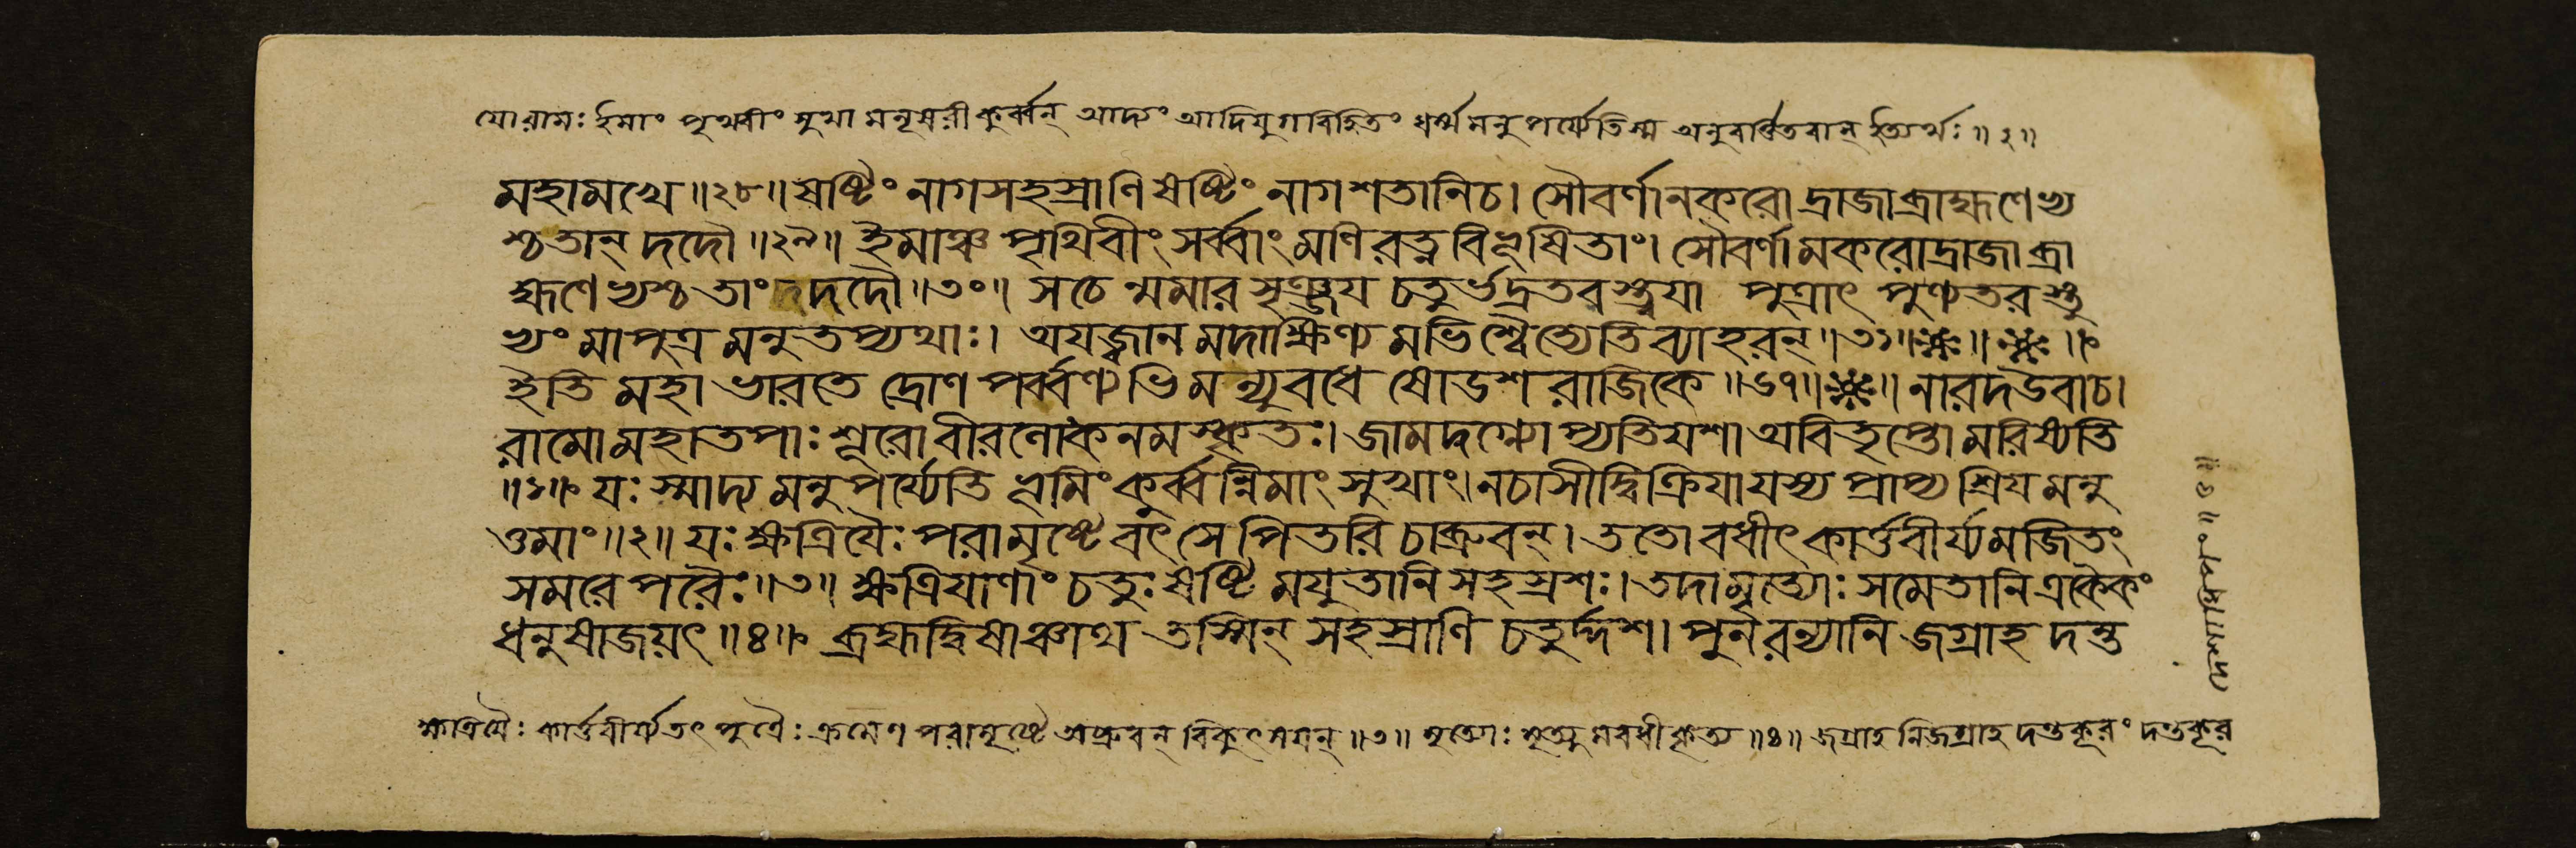 যোরামঃ ইমাং পৃথবীং সুখা মনূসরী কুর্ব্বন্ আদ্যং আদিযুগাবিহিতং ধর্ম্ম মনুপর্য্যেতিস্ম অনুবর্ত্তিতবান্ ইত্যর্থঃ ॥ ২ ॥
মহামখে ॥ ২৮ ॥ ষষ্টিং নাগসহস্রাণি ষষ্টিং নাগশতানিচ। সৌবর্ণানকরো দ্রাজা ব্রাহ্মণেভ্য
শ্চতান্ দদৌ ॥ ২৯ ॥ ইমাঞ্চ পৃথিবীং সর্ব্বাং মণিরত্নবিভূষিতাং। সৌবর্ণামকরোদ্রাজা ব্রা
হ্মণেভ্যশ্চ তাং দদৌ ॥ ৩০ ॥ সচে ন্মমার সৃঞ্জয চতুর্ভদ্রতরস্ত্বযা পুত্রাৎ পুণ্যতরস্তু
ভ্যং মাপুত্র মনুতপ্যথাঃ। অযজ্বানমদাক্ষিণ্য মভিশ্বৈত্যেতিব্যাহরন্ ॥ ৩১ ॥
ইতি মহাভারতে দ্রোণপর্ব্বণ্যভিমন্যুবধে ষোডশরাজিকে ॥ ৬৭ ॥ নারদউবাচ।
রামোমহাতপাঃ শূরোবীরলোকনমস্কৃতঃ। জামদগ্ন্যোপ্যতিযশা অবিতৃপ্তোমরিষ্যতি
॥ ১ ॥ যঃ স্মাদ্য মনুপর্য্যেতি ভূমিং কুর্ব্বন্নিমাং সুখাং। নচাসীদ্বিক্রিযাযস্য প্রাপ্য শ্রিযমনু
ত্তমাং ॥ ২ ॥ যঃ ক্ষত্রিযৈঃ পরামৃষ্টে বৎসে পিতরি চাব্রুবন্। ততোবধীৎ কার্ত্তবীর্য্যমজিতং
সমরে পরৈঃ ॥ ৩ ॥ ক্ষত্রিযাণাং চতুঃষষ্টি মযুতানি সহস্রশঃ। তদামৃত্যোঃ সমেতানি একৈকং
ধনুষাজয়ৎ ॥ ৪ ॥ ব্রহ্মদ্বিষাঞ্চাথ তস্মিন্ সহস্রাণি চতুর্দ্দশ। পুনরন্যানি জগ্রাহ দন্ত
ক্ষত্রিযৈঃ কার্ত্তবীর্য্যতৎ পুত্রৈঃ ক্রমেণ পরামৃষ্টে অব্রুবন্ বিকুৎসযন্ ॥ ৩ ॥ মৃত্যোঃ মৃত্যুমবধীকৃত্য ॥ ৪ ॥ জগ্রাহ নিজগ্রাহ দন্তকূরং দন্তকূর